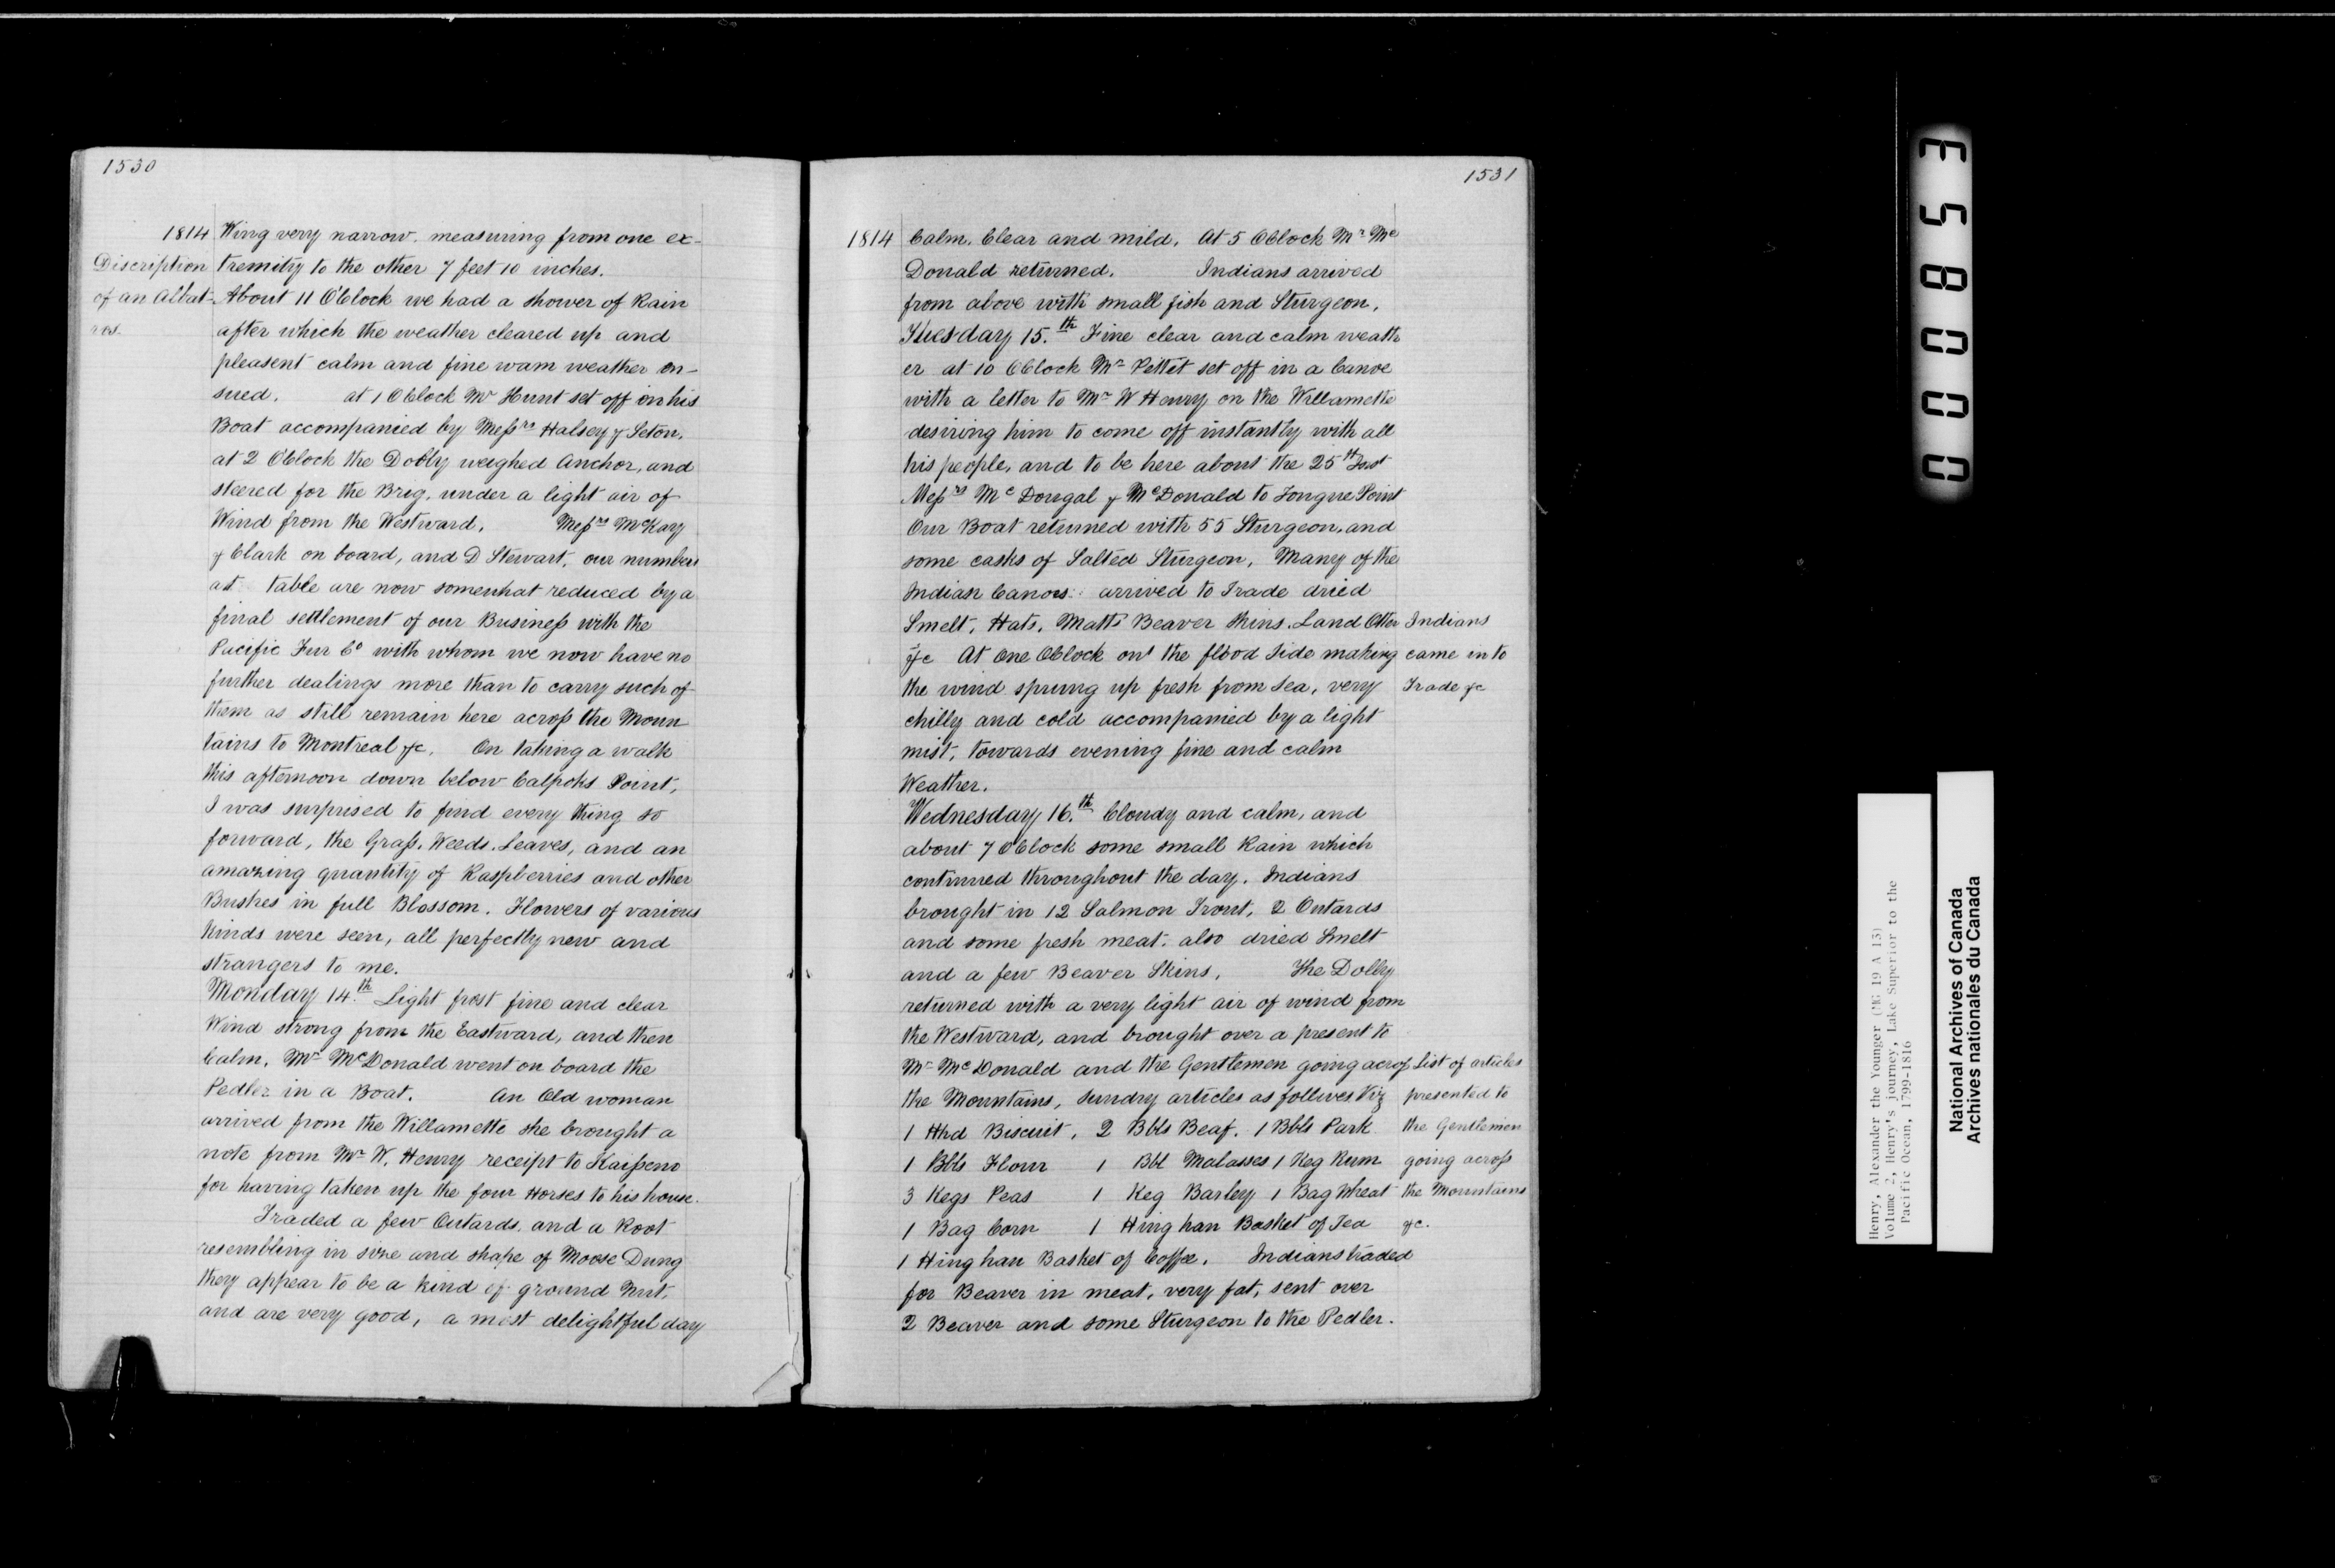 1530
1814
Discription
of an Albat-
ros.
Wing very narrow, measuring from one ex-
tremity to the other 7 feet 10 inches.
About 11 O'Clock we had a shower of Rain
after which the weather cleared up and
pleasent calm and fine wam weather en-
sued. at 1 OClock Mr Hunt set off in his
Boat accompanied by Messrs Halsey & Seton.
at 2 OClock the Dolly weighed Anchor, and
steered for the Brig, under a light air of
Wind from the Westward. Messrs McKay
& Clark on board, and D Stewart, our numbers
at table are now somewhat reduced by a
final settlement of our Business with the
Pacific Fur Co with whom we now have no
further dealings more than to carry such of
them as still remain here across the Moun
tains to Montreal &c. On taking a walk
this afternoon down below Calpoks Point,
I was surprised to find every thing so
forward, the Grass, Weeds, Leaves, and an
amazing quantity of Raspberries and other
Bushes in full Blossom. Flowers of various
kinds were seen, all perfectly new and
strangers to me.
Monday 14.th Light frost fine and clear
Wind strong from the Eastward, and then
Calm. Mr McDonald went on board the
Pedler in a Boat. An Old woman
arrived from the Willamette she brought a
note from Mr W. Henry receipt to Kaisseno
for having taken up the four Horses to his house.
Traded a few Outards, and a Root
resembling in size and shape of Moose Dung
they appear to be a kind of ground Nut,
and are very good, a most delightful day
1531
1814
Calm, Clear and mild. At 5 OClock Mr Mc
Donald returned. Indians arrived
from above with small fish and Sturgeon.
Tuesday 15.th Fine clear and calm weath
er at 10 OClock Mr Pettit set off in a Canoe
with a letter to Mr W Henry on the Willamette
desiring him to come off instantly with all
his people, and to be here about the 25th Inst
Messrs McDougal & McDonald to Tongue Point
Our Boat returned with 55 Sturgeon, and
some casks of Salted Sturgeon, Many of the
Indian Canoes arrived to Trade dried
Smelt, Hats, Matts Beaver Skins. Land Otter
&c At one OClock on the flood side making
the wind sprung up fresh from Sea, very
chilly and cold accompanied by a light
mist, towards evening fine and calm
Weather.
Indians
came in to
Trade &c
Wednesday 16.th Cloudy and calm, and
about 7 OClock some small Rain which
continued throughout the day. Indians
brought in 12 Salmon Trout, 2 Outards
and some fresh meat, also dried Smelt
and a few Beaver Skins. The Dolly
returned with a very light air of wind from
the Westward, and brought over a present to
Mr McDonald and the Gentlemen going across
the Mountains, sundry articles as follows Viz
1 Hhd Biscuit, 2 Bbls Beaf. 1 Bbls Park
1 Bbls Flour 1 Bbl Malasses 1 Keg Rum
3 Kegs Peas 1 Keg Barley 1 Bag Wheat
1 Bag Corn 1 Hing han Basket of Tea
1 Hing han Basket of Coffee. Indians traded
for Beaver in meat, very fat, sent over
2 Beaver and some Sturgeon to the Pedler.
List of articles
presented to
the Gentlemen
going across
the Mountains
&c.
0000853
Henry, Alexander the Younger (MG 19 A 13)
Volume 2, Henry's journey, Lake Superior to the
Pacific Ocean, 1799-1816
National Archives of Canada
Archives nationales du Canada